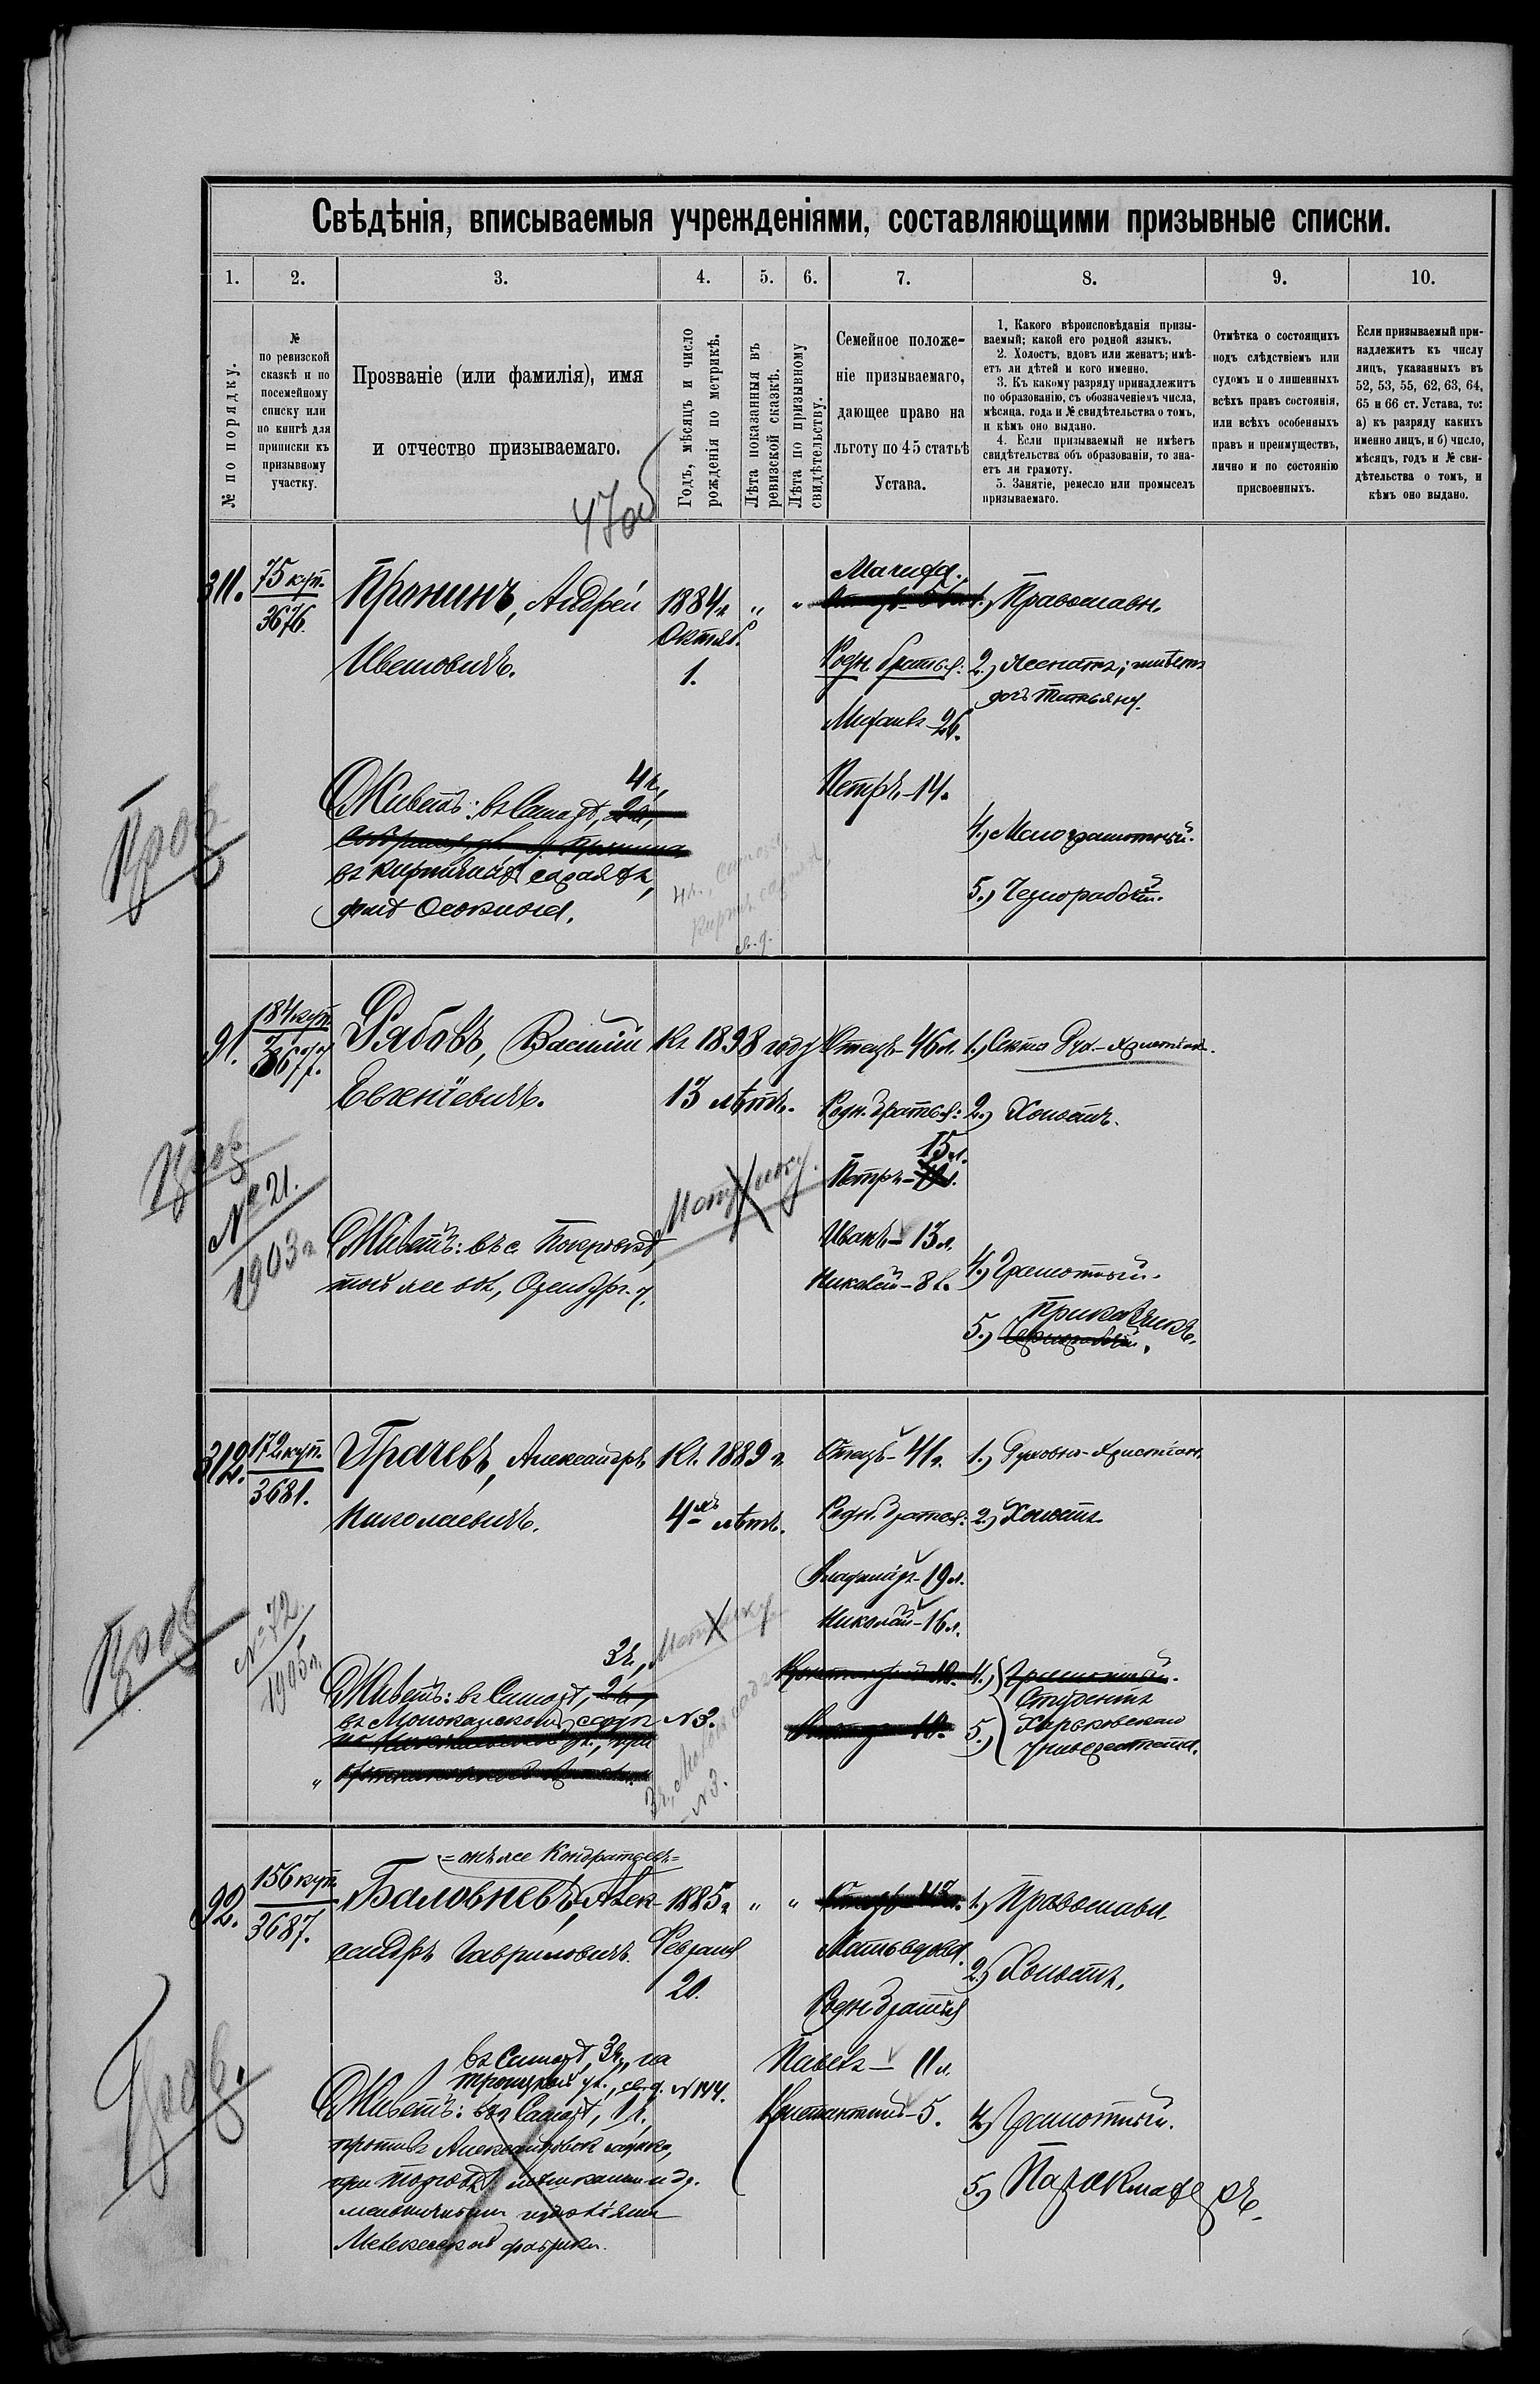 Свѣдѣнія, вписываемыя учрежденіями, составляющими призывные списки.
1. 2. 3. 4. 5. 6. 7. 8. 9. 10.
№ по порядку.
№
по ревизской
сказкѣ и по
посемейному
списку или
по книгѣ для
приписки къ
призывному
участку.
Прозваніе (или фамилія), имя
и отчество призываемаго.
Годъ, мѣсяцъ и число
рожденія по метрикѣ.
Лѣта показанныя въ
ревизской сказкѣ.
Лѣта по призывному
свидѣтельству.
Семейное положе-
ніе призываемаго,
дающее право на
льготу по 45 статьѣ
Устава.
1. Какого вѣроисповѣданія призы-
ваемый; какой его родной языкъ.
2. Холостъ, вдовъ или женатъ; имѣ-
етъ ли дѣтей и кого именно.
3. Къ какому разряду принадлежитъ
по образованію, съ обозначеніемъ числа,
мѣсяца, года и № свидѣтельства о томъ,
и кѣмъ оно выдано.
4. Если призываемый не имѣетъ
свидѣтельства объ образованіи, то зна-
етъ ли грамоту.
5. Занятіе, ремесло или промыселъ
призываемаго.
Отмѣтка о состоящихъ
подъ слѣдствіемъ или
судомъ и о лишенныхъ
всѣхъ правъ состоянія,
или всѣхъ особенныхъ
правъ и преимуществъ,
лично и по состоянію
присвоенныхъ.
Если призываемый при-
надлежитъ къ числу
лицъ, указанныхъ въ
52, 53, 55, 62, 63, 64,
65 и 66 ст. Устава, то:
а) къ разряду какихъ
именно лицъ, и б) число,
мѣсяцъ, годъ и № сви-
дѣтельства о томъ, и
кѣмъ оно выдано.
47об
311.
75 куп.
3676.
Пронинъ, Андрей
Ивановичъ.
1884 г.
Октяб.
1.
" "
Мачиха.
Родн. братья:
26.
Петръ - 14.
1.) Православн.
2.) Женатъ; имѣетъ
дочь Татьяну.
4.) Малограмотный.
5.) Чернорабоч.
Живетъ: въ Самарѣ, 4 ч.,
въ кирпичныхъ сараяхъ,
Пров
91.
184 куп.
3677.
Рябовъ, Василій
Евгеніевичъ.
Къ 1898 году
13 лѣтъ.
Отецъ - 46 л.
Родн. братья:
15 л.
Петръ -
Иванъ - 13 л.
Николай - 8 л.
1.) Секта Дух.-Христіан.
2.) Холостъ.
4.) Грамотный.
Приказчикъ.
5.) Чернорабочій.
Метрику.
Живетъ: въ с. Покровкѣ,
той же вол., Оренбург. у.
Пров
№ 21.
1903 г.
312.
172 куп.
3681.
Грачевъ, Александръ
Николаевичъ.
Къ 1889 г.
4-хъ лѣтъ.
Отецъ - 41 г.
Родн. братья:
Владиміръ - 19 л.
Николай - 16 л.
1.) Духовно-Христіан.
2.) Холостъ.
4.) Грамотный.
Студентъ
5.) Харьковскаго
Университета.
Метрику
Живетъ: въ Самарѣ, 3 ч.,
№ 3.
Пров
№ 72.
1905 г.
92.
156 куп.
3687.
= онъ же Кондратьевъ =
Баловневъ, Алек-
сандръ Гавриловичъ.
1885 г.
Февраля
20.
" "
Мать вдова.
Родн. братья
Павелъ - 11 л.
Константинъ - 5.
1.) Православн.
2.) Холостъ.
4.) Грамотный.
5.) Парикмахеръ.
въ Самарѣ, 3 ч., на
Троицкой ул., св. д. № 144.
Живетъ: въ Самарѣ, 1 ч.,
противъ
при
Мелекесской фабрики.
Пров.